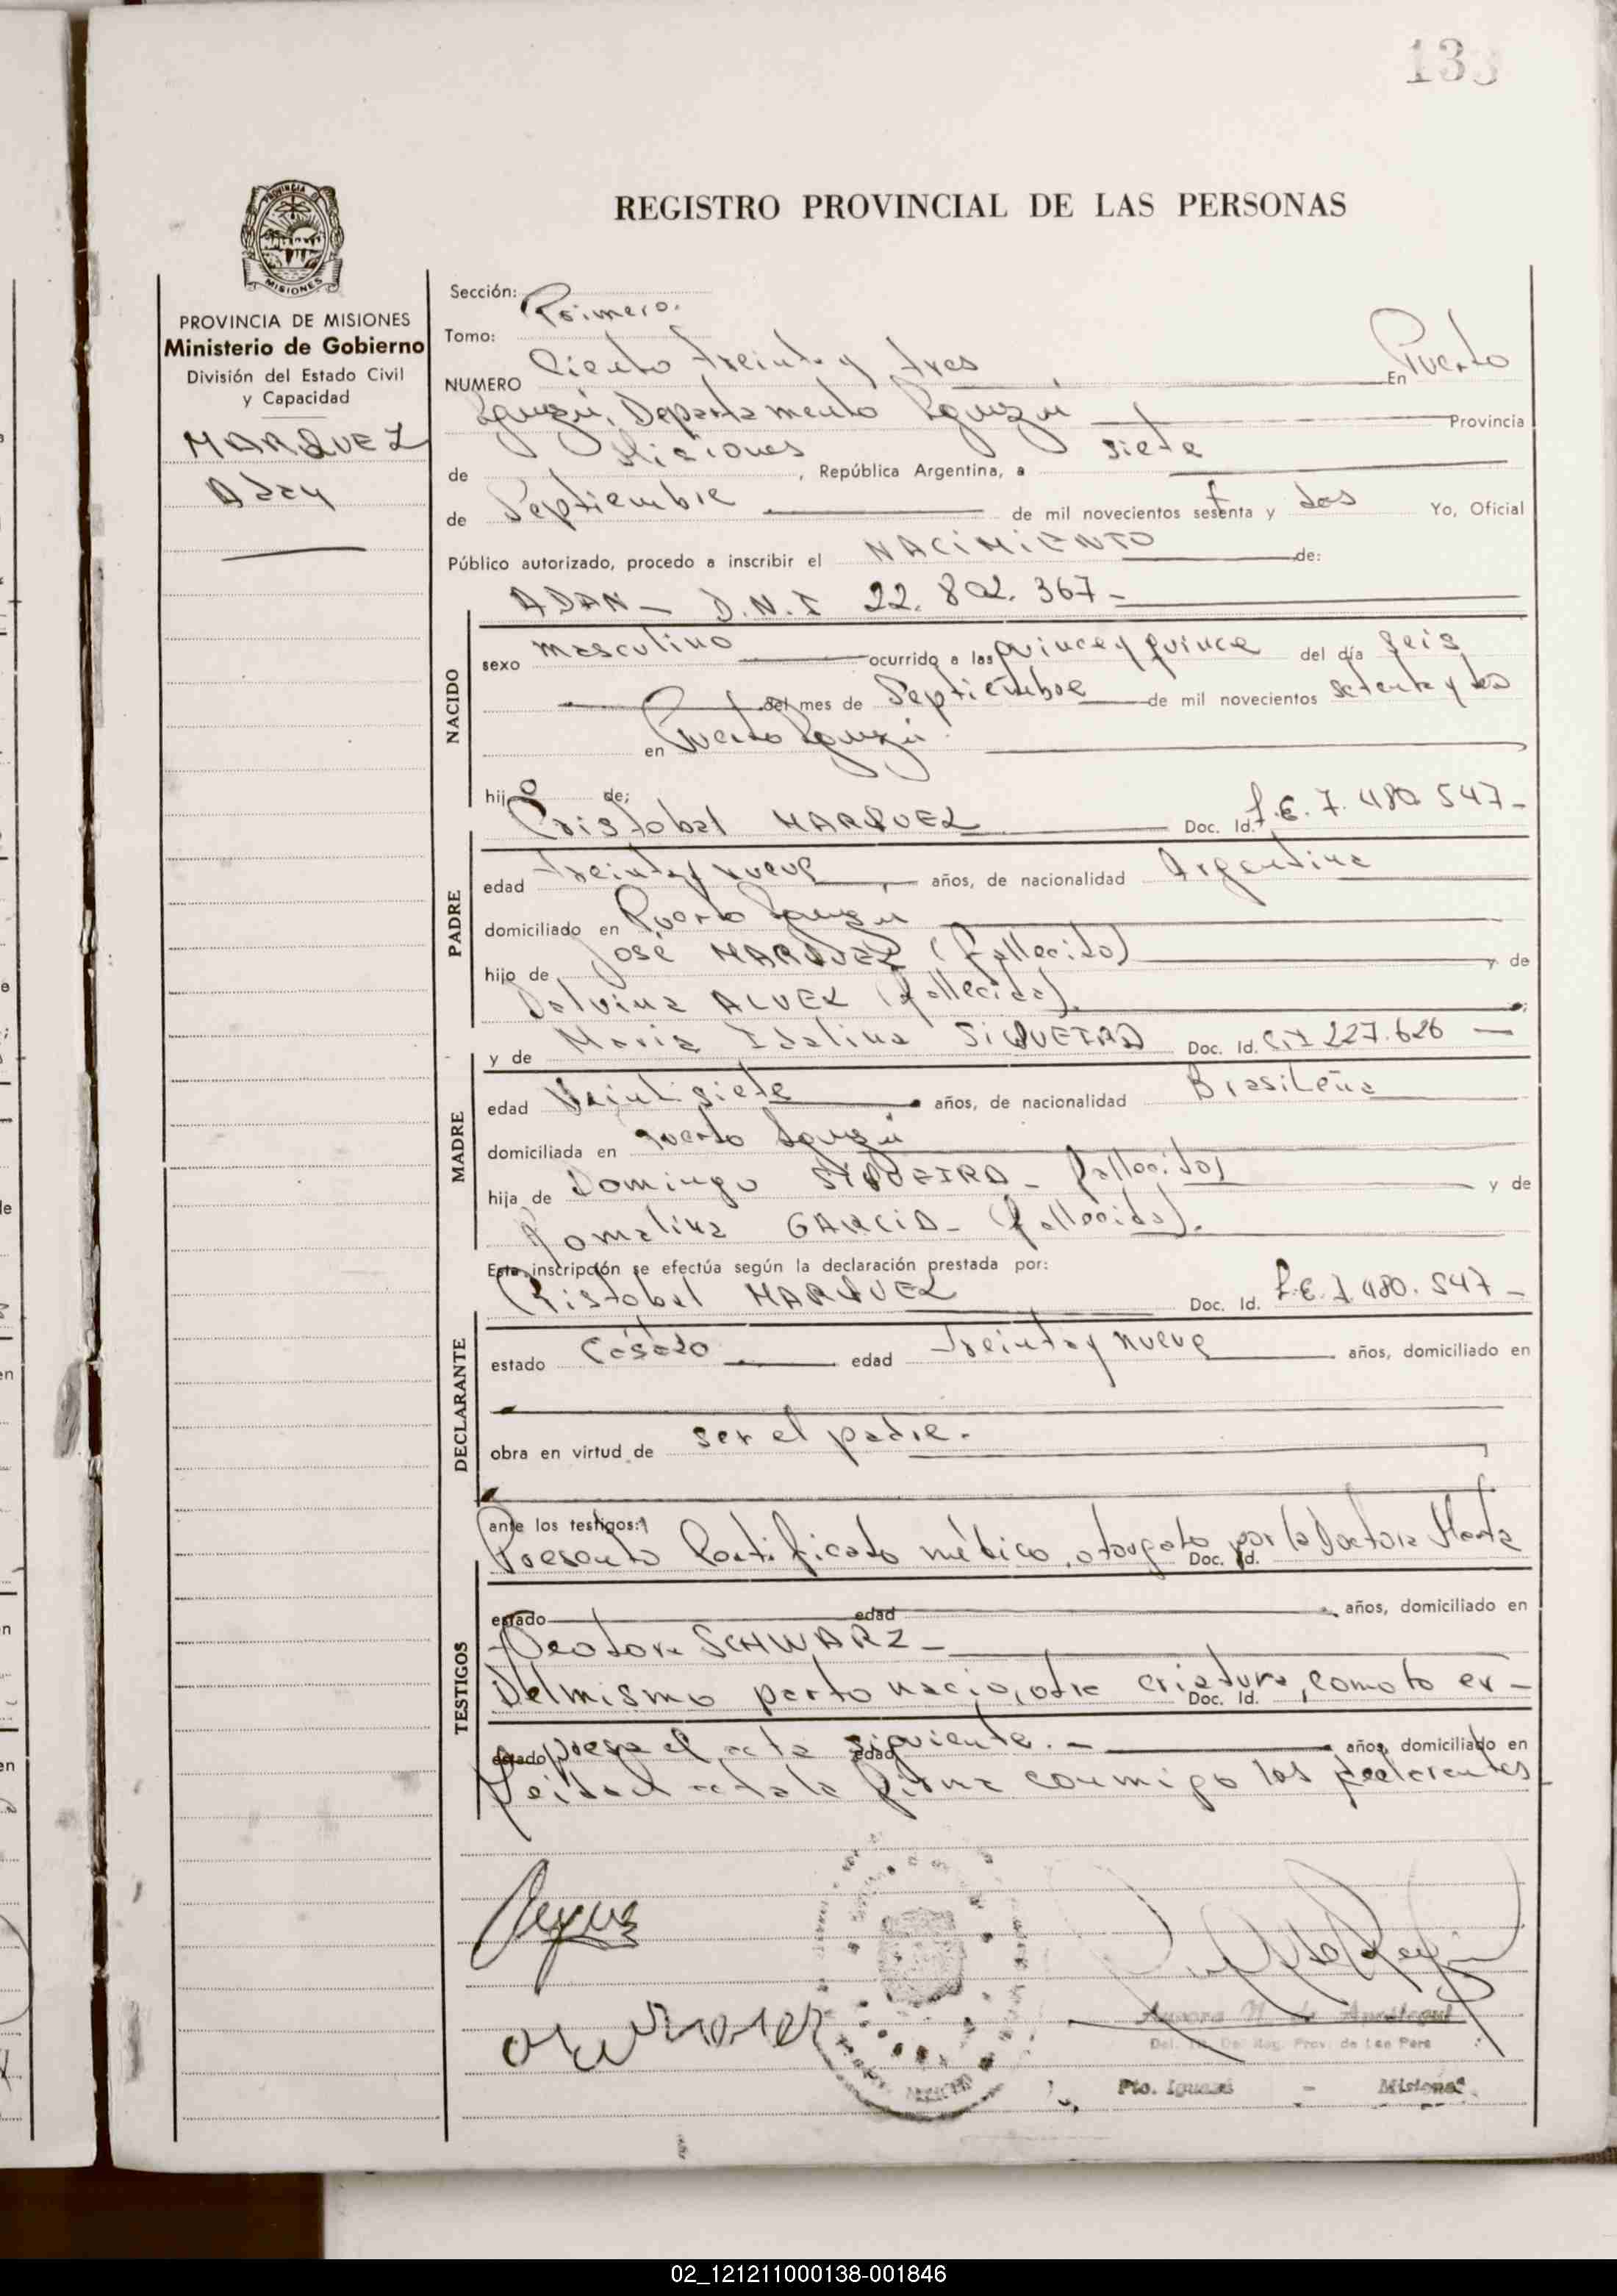 133
REGISTRO PROVINCIAL DE LAS PERSONAS
PROVINCIA
MISIONES
PROVINCIA DE MISIONES
Ministerio de Gobierno
División del Estado Civil
y Capacidad
MARQUEZ
Adan
Sección: Primero.
Tomo:
NUMERO Ciento treinta y tres En Puerto
Iguazú, Departamento Iguazú Provincia
de Misiones, República Argentina, a siete
de Septiembre de mil novecientos setenta y dos Yo, Oficial
Público autorizado, procedo a inscribir el NACIMIENTO de:
ADAN - D.N.I 22.802.367-
NACIDO
sexo masculino ocurrido a las quince y quince del día seis
del mes de Septiembre de mil novecientos setenta y dos
en Puerto Iguazú
hijo de:
Cristobal MARQUEZ Doc. Id. L.E. 7.480.547-
PADRE
edad treinta y nueve años, de nacionalidad Argentina
domiciliado en Puerto Iguazú
hijo de José MARQUEZ (fallecido) y de
ALVEZ (fallecida).
y de Maria Idalina SIQUEIRA Doc. Id. C.I 227.626
MADRE
edad Veintisiete años, de nacionalidad Brasileña
domiciliada en Puerto Iguazú
hija de Domingo SIQUEIRA - fallecido y de
Romalina GARCIA - (fallecida).
Esta inscripción se efectúa según la declaración prestada por:
Cristobal MARQUEZ Doc. Id. L.E. 7.480.547-
DECLARANTE
estado Casado edad treinta y nueve años, domiciliado en
obra en virtud de ser el padre.
ante los testigos:
Presento Certificado médico, otorgado por la Doctora Marta
Doc. Id.
TESTIGOS
estado edad años, domiciliado en
Teodora SCHWARZ -
Del mismo parto nacio, otra criatura, como lo ex-
Doc. Id.
estado edad años, domiciliado en
presa el acta siguiente. -
Leida el acta la firma conmigo los declarantes
Del. Reg. Prov. de Las Pers
Pto. Iguazú - Misiones
02_121211000138-001846